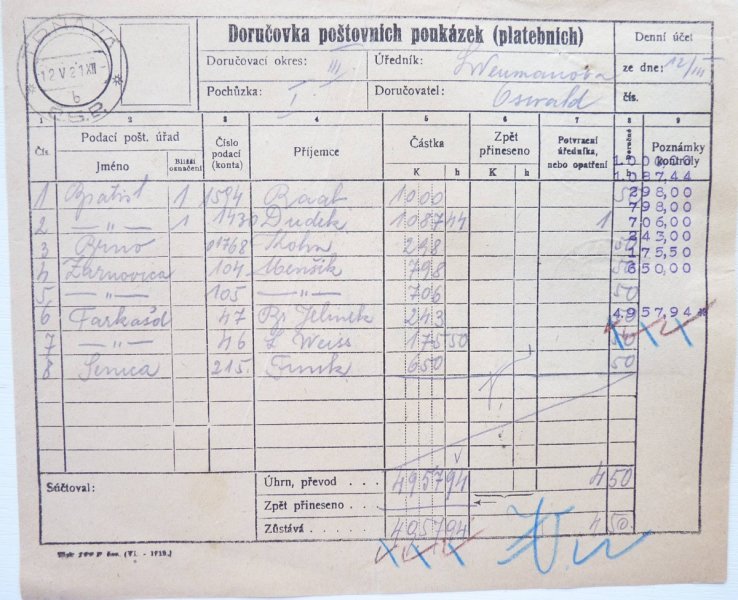 TRNAVA
12 V 21 XII
b
ČS.P.
Doručovka poštovních poukázek (platebních)
Denní účet
Doručovací okres: III
Úředník:
ze dne: 12/III
Pochůzka: I.
Doručovatel: Oswald
čís.
1 2 3 4 5 6 7 8 9
Čís.
Podací pošt. úřad
Jméno
Bližší označení
Číslo podací (konta)
Příjemce
Částka
K h
Zpět přineseno
K h
Potvrzení úředníka, nebo opatření
Doručné
h
Poznámky kontroly
1 1 1594 1000 50 1000,00
2 —"— 1 1430 Dudek 1087 44 1 1087,44
3 Brno 01768 Kohn 298 50 298,00
4 Žarnovica 104 Menšík 798 50 798,00
5 —"— 105 —"— 706 50 706,00
6 Farkašd 47 Jelinek 243 50 243,00
7 —"— 46 L. Weiss 175 50 50 175,50
8 Senica 215. Funk 650 50 650,00
4957,94*
Súčtoval:
Úhrn, převod . . . 4957 94 4 50
Zpět přineseno . . .
Zůstává . . . . . 4957 94 4 50.
(VI. - 1919.)